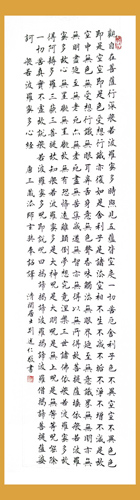 觀自在菩薩行深般若波羅蜜多時照見五蘊皆空度一切苦厄舍利子色不異空空不異色色
即是空空即是色受想行識亦復如是舍利子是諸法空相不生不滅不垢不淨不增不減是故
空中無色無受想行識無眼耳鼻舌身意無色聲香味觸法無眼界乃至無意識界無無明亦
無無明盡乃至無老死亦無老死盡無苦集滅道無智亦無得以無所得故菩提薩埵依般若波羅
蜜多故心無罣礙無罣礙故無有恐怖遠離顛倒夢想究竟涅槃三世諸佛依般若波羅蜜多故
得阿耨多羅三藐三菩提故知般若波羅蜜多是大神咒是大明咒是無上咒是無等等咒能除
一切苦真實不虛故說般若波羅蜜多咒即說咒曰揭諦揭諦波羅揭諦波羅僧揭諦菩提薩婆
訶 般若波羅蜜多心經 唐三藏法師玄奘奉詔譯 清閒居士劉廷仁敬書